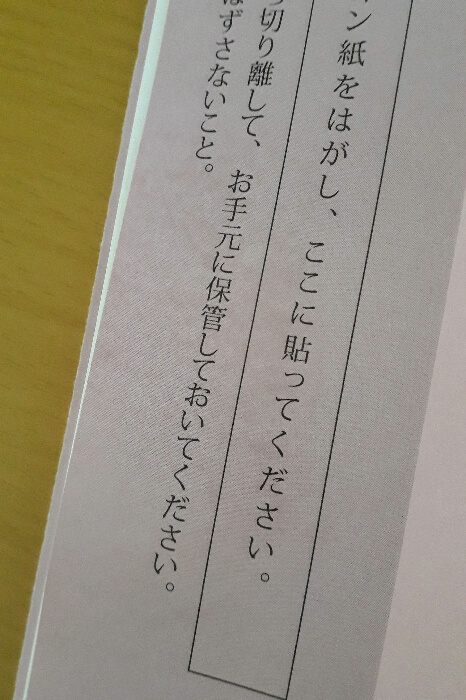 ン紙をはがし、ここに貼ってください。
切り離して、お手元に保管しておいてください。
はずさないこと。